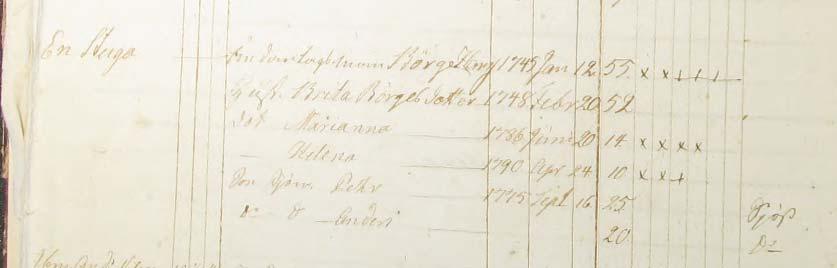 En Stuga Börge 1745 Jan 12 55 x x + + +
Hust. Brita Börges Dotter 1748 Febr 20 52
Dot Marianna 1786 Juni 20 14 x x x x
— Helena 1790 Apr 24 10 x x +
Son Pehr 1775 Sept 16 25
Do Do — Anders 20 Do